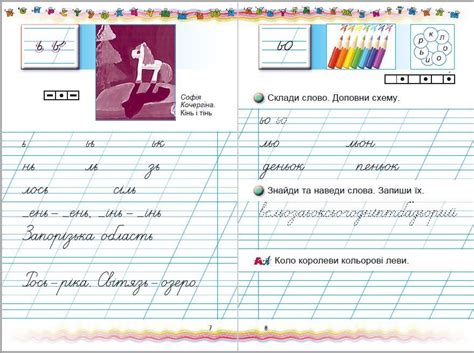 ь ЬЬ
Софія
Кочергіна.
Кінь і тінь
ь ьь ьк
нь ль зь
лось сіль
_ень – _ень, _інь – _інь
Запорізька область
Рось – ріка. Світязь – озеро.
7
ьо
Склади слово. Доповни схему.
ьо ьо
льо льон
деньок пеньок
Знайди та наведи слова. Запиши їх.
Коло королеви кольорові леви.
8